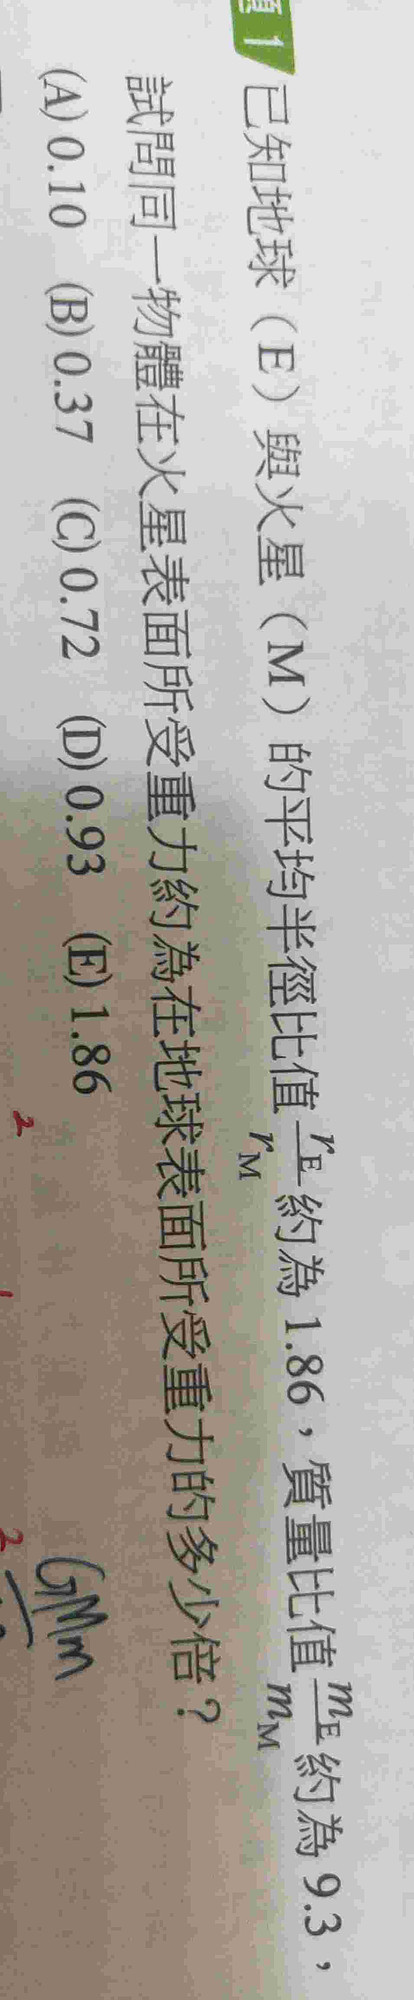 題1 已知地球（E）與火星（M）的平均半徑比值 r_E/r_M 約為 1.86，質量比值 m_E/m_M 約為 9.3，
試問同一物體在火星表面所受重力約為在地球表面所受重力的多少倍？
(A) 0.10 (B) 0.37 (C) 0.72 (D) 0.93 (E) 1.86
2
GMm
2